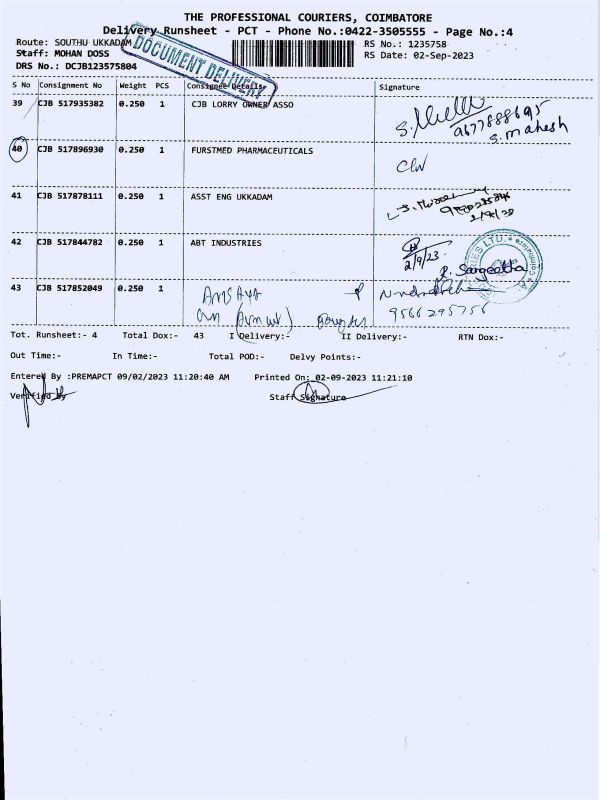 THE PROFESSIONAL COURIERS, COIMBATORE
Delivery Runsheet - PCT - Phone No.:0422-3505555 - Page No.:4
Route: SOUTHU UKKADAM
RS No.: 1235758
Staff: MOHAN DOSS
RS Date: 02-Sep-2023
DRS No.: DCJB123575804
DOCUMENT DELIVERY
S No Consignment No Weight PCS Consignee Details Signature
39 CJB 517935382 0.250 1 CJB LORRY OWNER ASSO
9677888695
S. mahesh
40 CJB 517896930 0.250 1 FURSTMED PHARMACEUTICALS
41 CJB 517878111 0.250 1 ASST ENG UKKADAM
2/9/23
42 CJB 517844782 0.250 1 ABT INDUSTRIES
2/9/23
R. Sangeetha
43 CJB 517852049 0.250 1
9566295756
Tot. Runsheet:- 4 Total Dox:- 43 I Delivery:- II Delivery:- RTN Dox:-
Out Time:- In Time:- Total POD:- Delvy Points:-
Entered By :PREMAPCT 09/02/2023 11:20:40 AM Printed On: 02-09-2023 11:21:10
Verified By Staff Signature